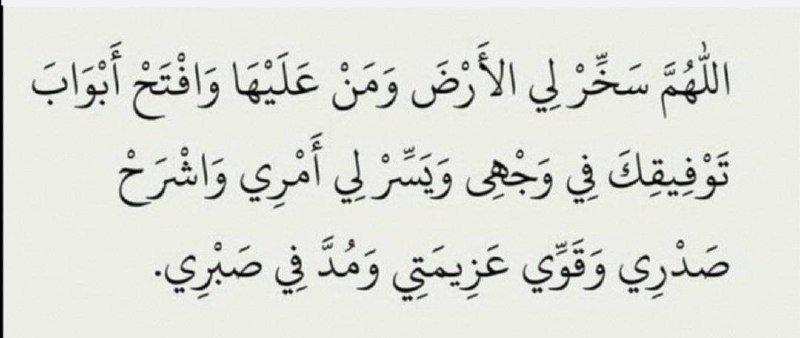 اللَّهُمَّ سَخِّرْ لِي الأَرْضَ وَمَنْ عَلَيْهَا وَافْتَحْ أَبْوَابَ
تَوْفِيقِكَ فِي وَجْهِى وَيَسِّرْ لِي أَمْرِي وَاشْرَحْ
صَدْرِي وَقَوِّي عَزِيمَتِي وَمُدَّ فِي صَبْرِي.